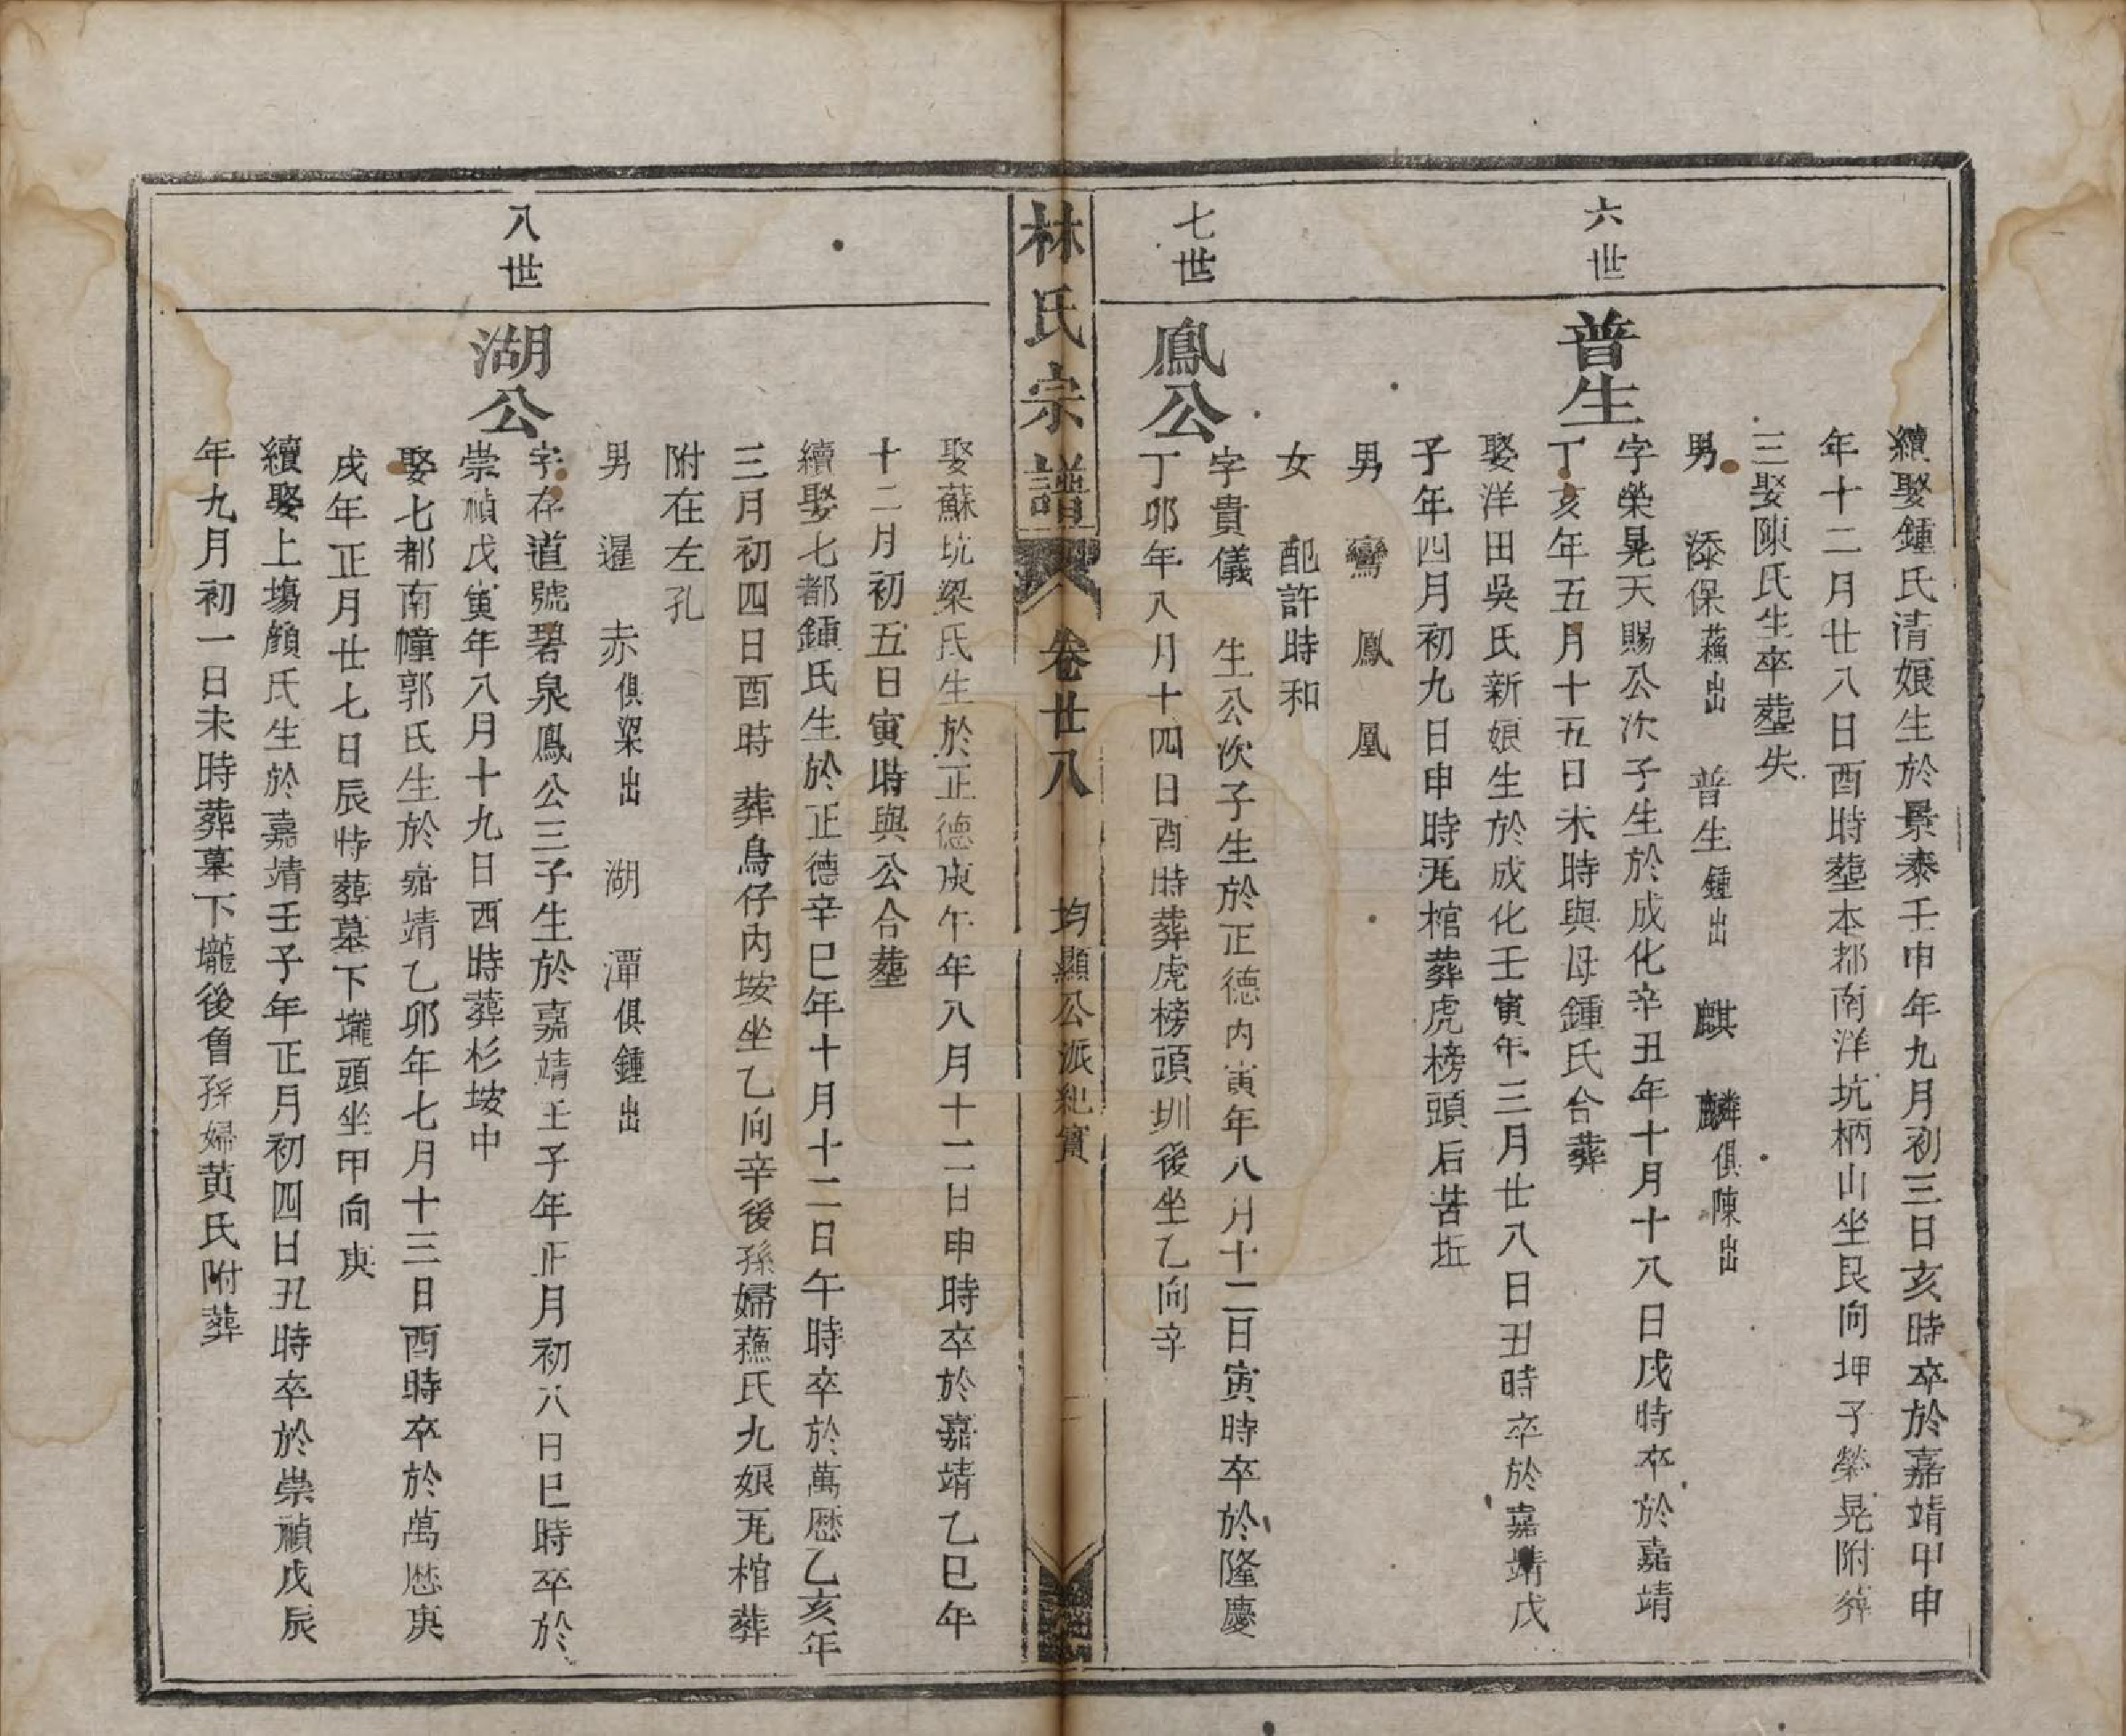 續娶鍾氏清娘生於景泰壬申年九月初三日亥時卒於嘉靖甲申
年十二月廿八日酉時塟本都南洋坑柄山坐艮向坤子榮晃附葬
三娶陳氏生卒塟失
男　添保蘓出　普生鍾出　麒　麟俱陳出
六世
普生
字榮晃天賜公次子生於成化辛丑年十月十八日戌時卒於嘉靖
丁亥年五月十五日未時與母鍾氏合葬
娶洋田吳氏新娘生於成化壬寅年三月廿八日丑時卒於嘉靖戊
子年四月初九日申時尫棺葬虎榜頭后苦坵
男　鸞　鳳　凰
女　配許時和
七世
鳳公
字貴儀　生公次子生於正德内寅年八月十二日寅時卒於隆慶
丁卯年八月十四日酉時葬虎榜頭圳後坐乙向辛
林氏宗譜　卷廿八　均顯公派紀實　二
娶蘇坑梁氏生於正德庚午年八月十二日申時卒於嘉靖乙巳年
十二月初五日寅時與公合塟
續娶七都鍾氏生於正德辛巳年十月十二日午時卒於萬歷乙亥年
三月初四日酉時葬烏仔内垵坐乙向辛後孫婦蘓氏九娘尫棺葬
附在左孔
男　暹　赤俱梁出　湖　潭俱鍾出
八世
湖公
字存道號碧泉鳳公三子生於嘉靖壬子年正月初八日巳時卒於
崇禎戊寅年八月十九日酉時葬杉坡中
娶七都南幢郭氏生於嘉靖乙卯年七月十三日酉時卒於萬歷庚
戌年正月廿七日辰時葬墓下壠頭坐甲向庚
續娶上塲顏氏生於嘉靖壬子年正月初四日丑時卒於崇禎戊辰
年九月初一日未時葬墓下壠後曾孫婦黃氏附葬